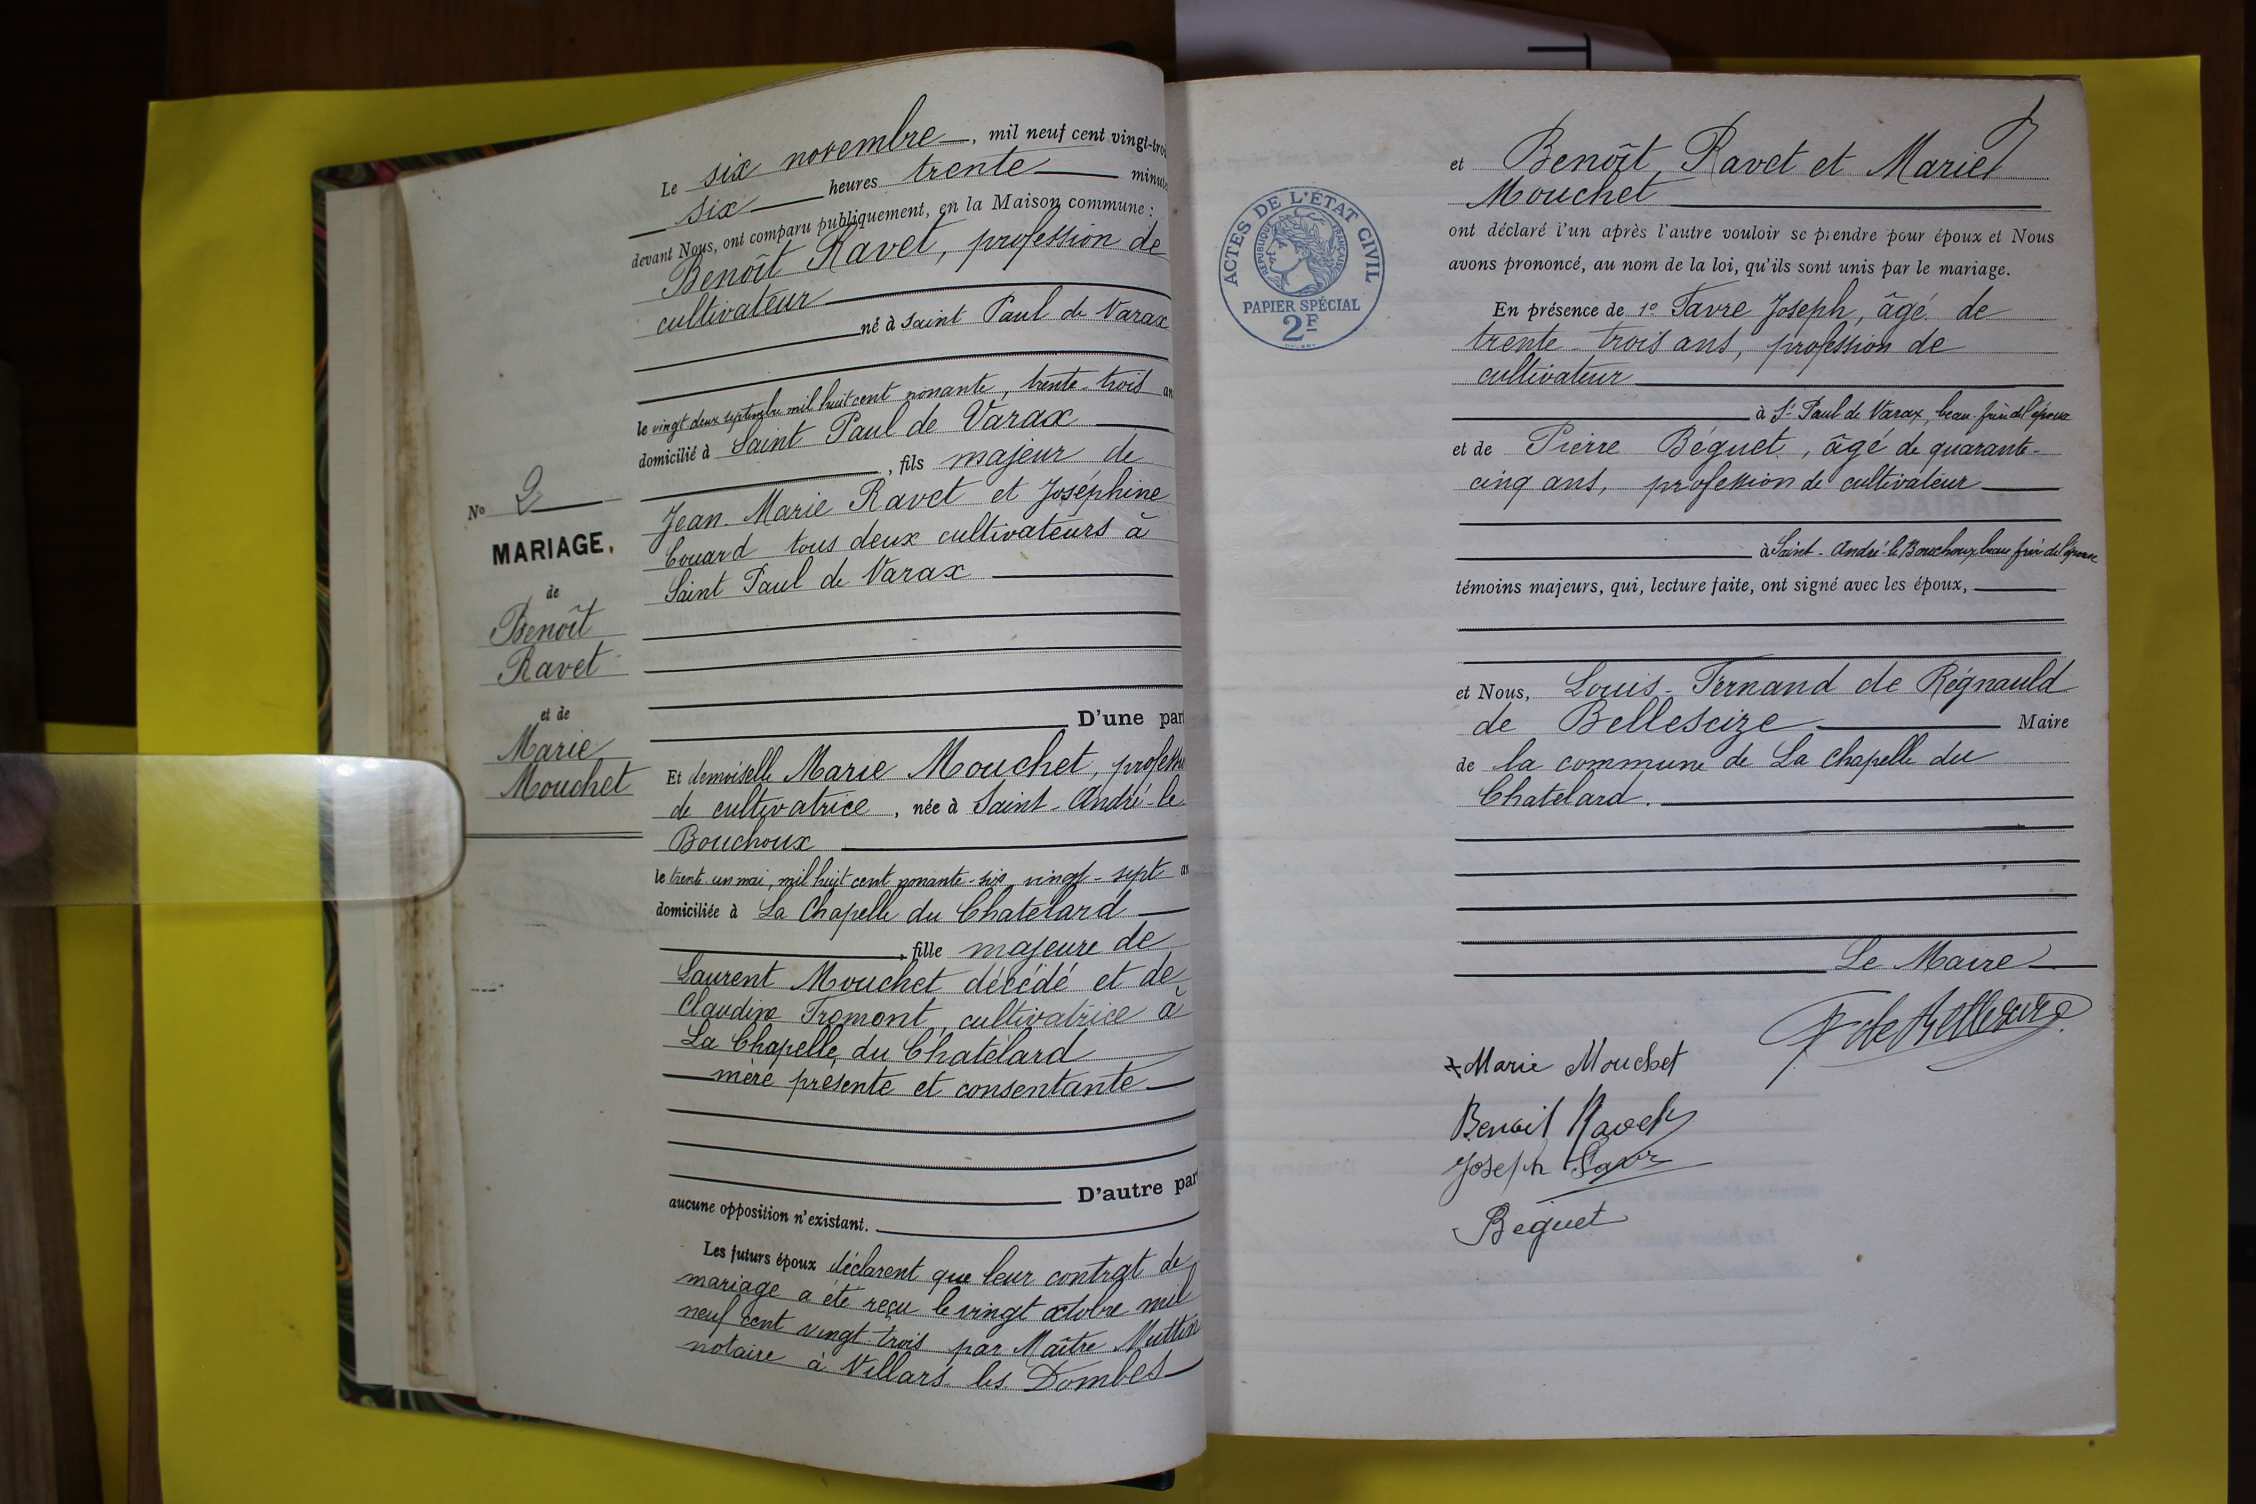 Le six novembre, mil neuf cent vingt-troi
six heures trente minute
devant Nous, ont comparu publiquement, en la Maison commune :
Benoît Ravet, profession de
cultivateur
né à Saint Paul de Varax
le vingt deux septembre mil huit cent nonante, trente-trois an
domicilié à Saint Paul de Varax
, fils majeur de
Jean-Marie Ravet et Joséphine
Couard tous deux cultivateurs à
Saint Paul de Varax
D'une par
No 2
MARIAGE.
de
Benoît
Ravet
et de
Marie
Mouchet
Et demoiselle Marie Mouchet, profession
de cultivatrice, née à Saint-André-le
Bouchoux
le trente-un mai, mil huit cent nonante-six, vingt-sept a
domiciliée à La Chapelle du Chatelard
, fille majeure de
Laurent Mouchet décédé et de
Claudine Fromont, cultivatrice à
La Chapelle du Chatelard
mère présente et consentante
D'autre par
aucune opposition n'existant.
Les futurs époux déclarent que leur contrat de
mariage a été reçu le vingt octobre mil
neuf cent vingt-trois par Maître Muttin
notaire à Villars les Dombes
ACTES DE L'ÉTAT CIVIL
RÉPUBLIQUE FRANÇAISE
PAPIER SPÉCIAL
2F
et Benoît Ravet et Marie
Mouchet
ont déclaré l'un après l'autre vouloir se prendre pour époux et Nous
avons prononcé, au nom de la loi, qu'ils sont unis par le mariage.
En présence de 1º Favre Joseph, âgé de
trente-trois ans, profession de
cultivateur
à St Paul de Varax, beau-frère de l'époux
et de Pierre Béguet, âgé de quarante-
cinq ans, profession de cultivateur
à Saint-André-le Bouchoux, beau frère de l'épouse
témoins majeurs, qui, lecture faite, ont signé avec les époux,
et Nous, Louis-Fernand de Régnauld
de Bellescize Maire
de la commune de La Chapelle du
Chatelard.
Le Maire
F de Bellescize
Marie Mouchet
Benoit Ravet
Joseph Favre
Béguet